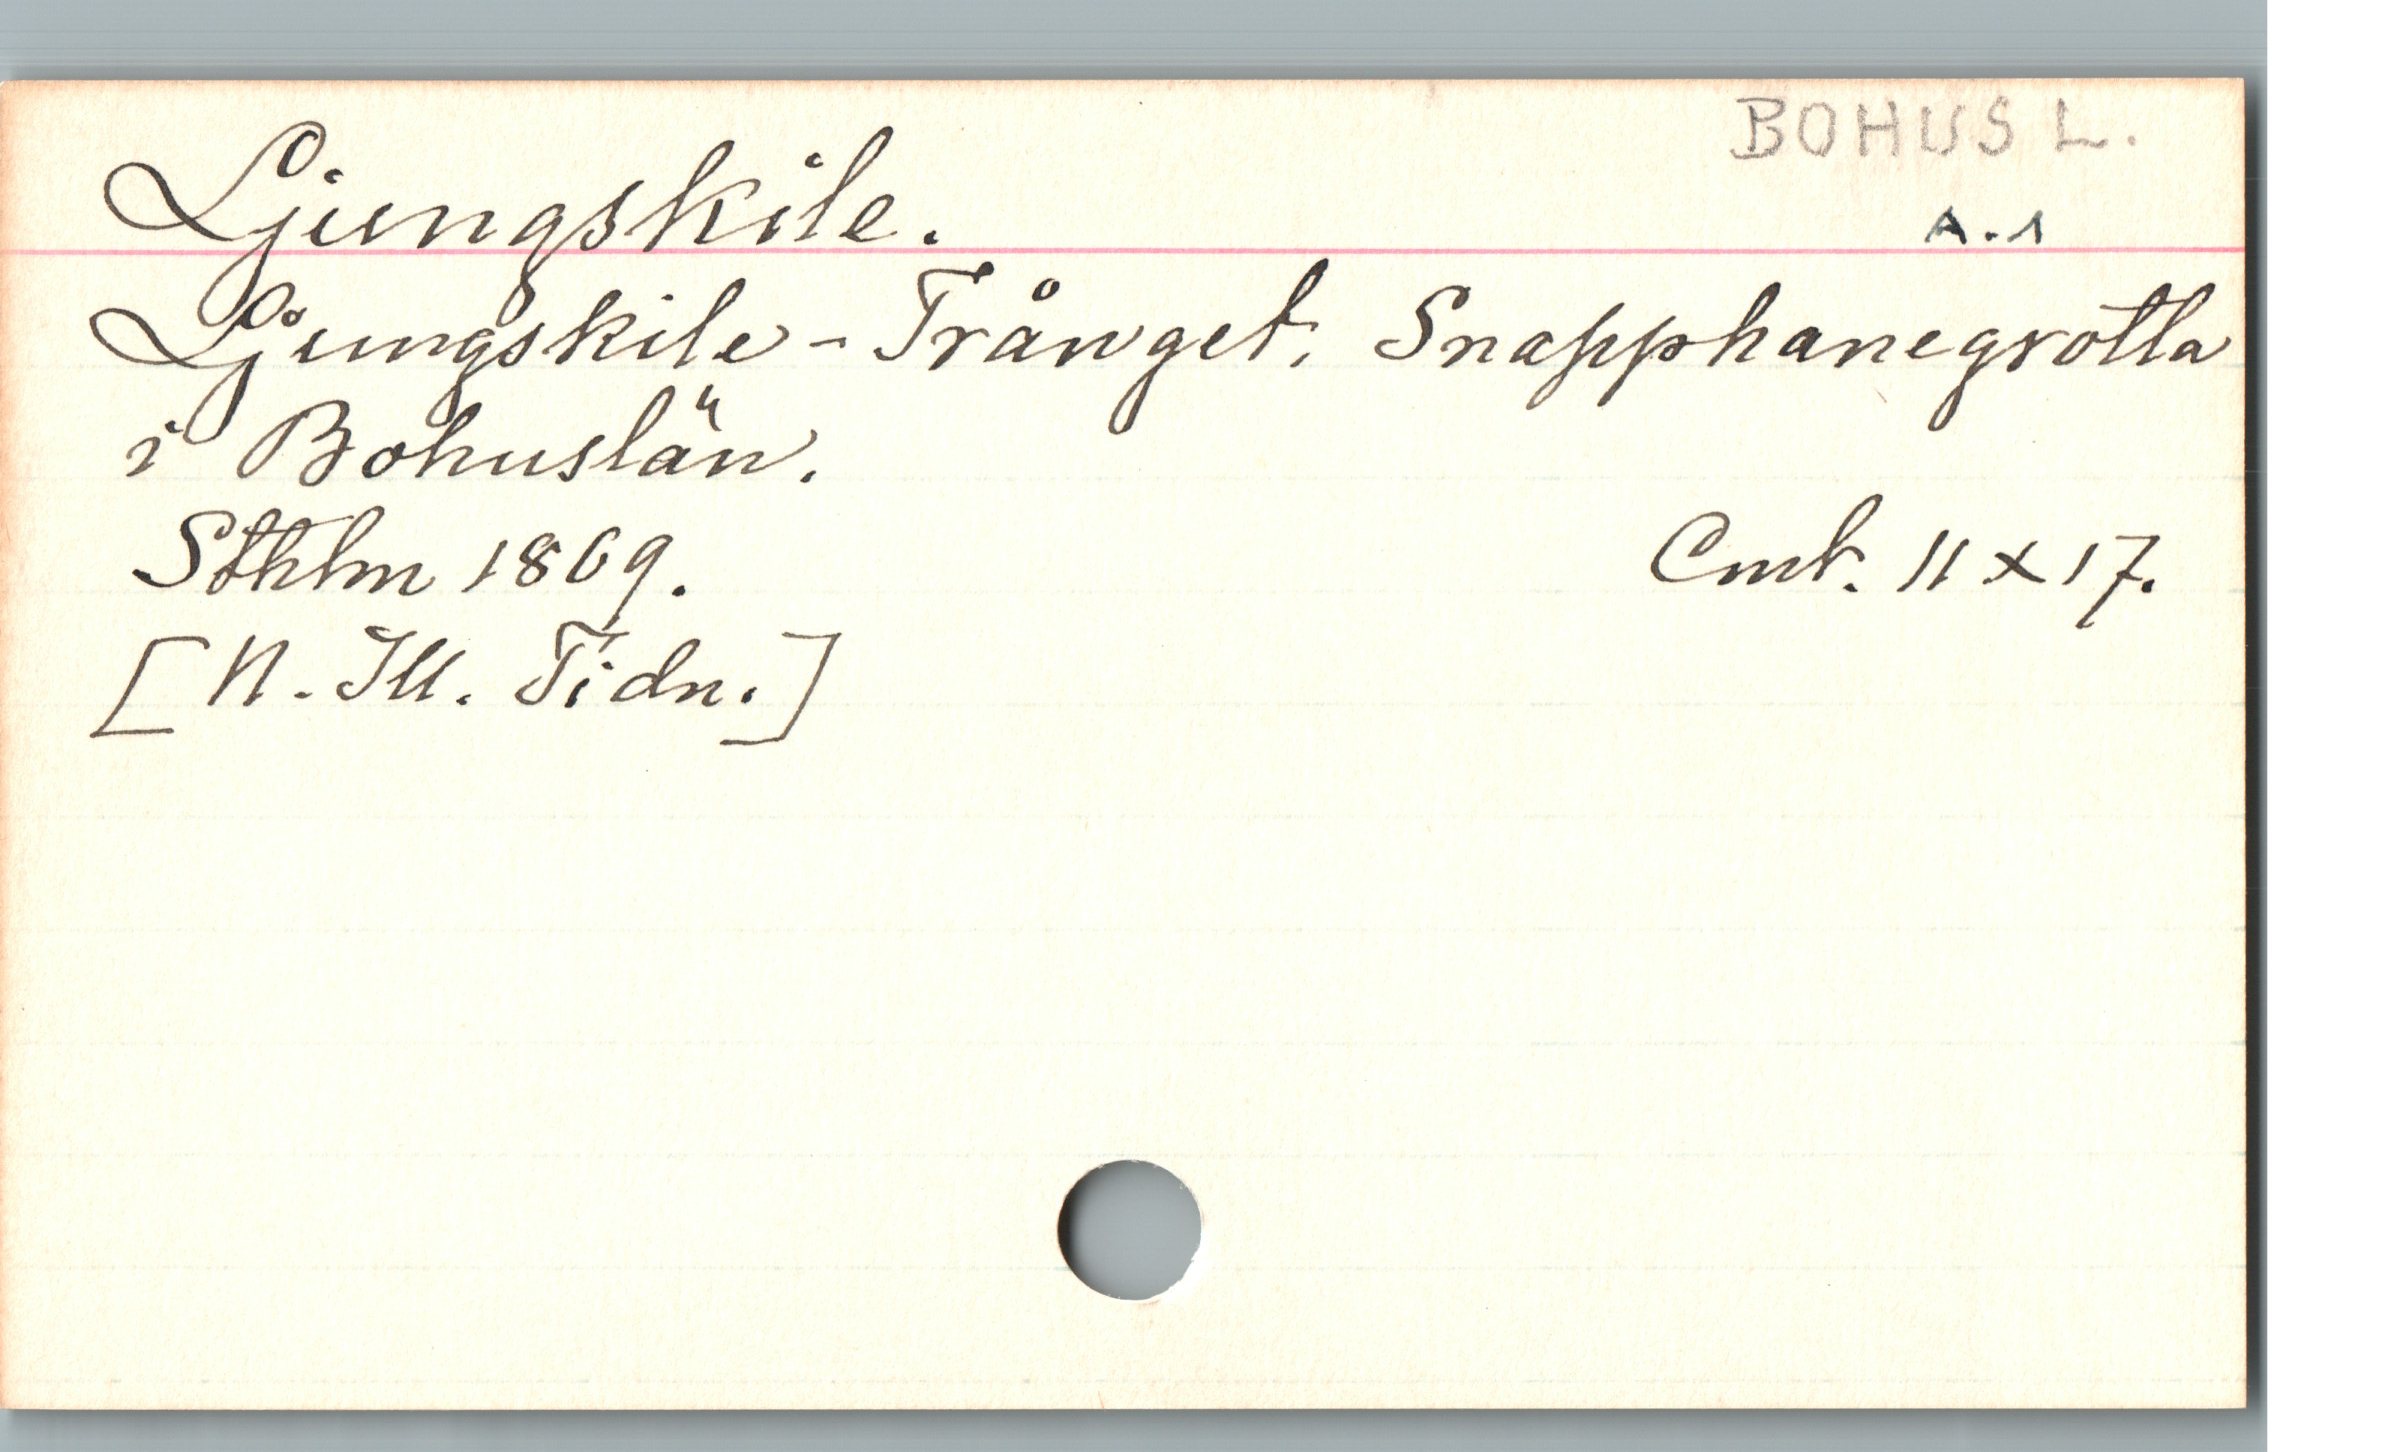 BOHUS L.
Ljungskile.
A.1
Ljungskile-Trånget, Snapphanegrotta
i Bohuslän.
Sthlm 1869.
Cmt. 11 x 17.
[N. Ill. Tidn.]